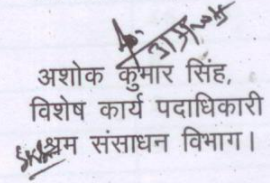 अशोक कुमार सिंह,
विशेष कार्य पदाधिकारी
श्रम संसाधन विभाग।